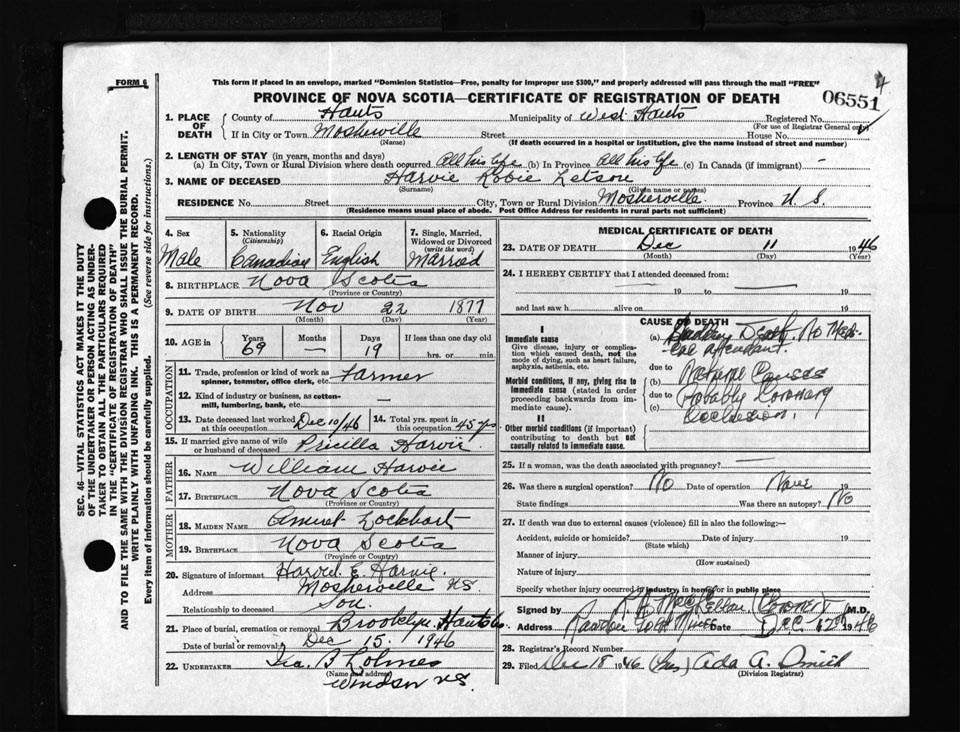 4
FORM 6
This form if placed in an envelope, marked "Dominion Statistics—Free, penalty for improper use $300," and properly addressed will pass through the mail "FREE"
PROVINCE OF NOVA SCOTIA—CERTIFICATE OF REGISTRATION OF DEATH
06551
1. PLACE OF DEATH
County of Hants Municipality of West Hants Registered No.
(For use of Registrar General only)
If in City or Town Mosherville Street House No.
(Name) (If death occurred in a hospital or institution, give the name instead of street and number)
2. LENGTH OF STAY (in years, months and days)
(a) In City, Town or Rural Division where death occurred all his life (b) In Province all his life (c) In Canada (if immigrant) -
3. NAME OF DECEASED Harvie Robie Letson
(Surname) (Given name or names)
RESIDENCE No. Street City, Town or Rural Division Mosherville Province N. S.
(Residence means usual place of abode. Post Office Address for residents in rural parts not sufficient)
4. Sex Male
5. Nationality (Citizenship) Canadian
6. Racial Origin English
7. Single, Married, Widowed or Divorced (write the word) Married
8. BIRTHPLACE Nova Scotia
(Province or Country)
9. DATE OF BIRTH Nov 22 1877
(Month) (Day) (Year)
10. AGE in Years 69 Months — Days 19 If less than one day hrs. or min.
OCCUPATION
11. Trade, profession or kind of work as spinner, teamster, office clerk, etc. Farmer
12. Kind of industry or business, as cotton-mill, lumbering, bank, etc. —
13. Date deceased last worked at this occupation Dec 10/46
14. Total yrs. spent in this occupation 45 yrs
15. If married give name of wife or husband of deceased Pricilla Harvie
FATHER
16. NAME William Harvie
17. BIRTHPLACE Nova Scotia
(Province or Country)
MOTHER
18. MAIDEN NAME Lockhart
19. BIRTHPLACE Nova Scotia
(Province or Country)
20. Signature of informant Harold E. Harvie
Address Mosherville NS
Relationship to deceased Son
21. Place of burial, cremation or removal Brooklyn Hants Co
Date of burial or removal Dec 15. 1946
22. UNDERTAKER Ira B Lohnes
(Name and address)
Windsor NS
MEDICAL CERTIFICATE OF DEATH
23. DATE OF DEATH Dec 11 1946
(Month) (Day) (Year)
24. I HEREBY CERTIFY that I attended deceased from:
19 to 19
and last saw h alive on 19
CAUSE OF DEATH
I
Immediate cause
Give disease, injury or complication which caused death, not the mode of dying, such as heart failure, asphyxia, asthenia, etc.
(a) Sudden Death. No Medical attendant.
due to
Morbid conditions, if any, giving rise to immediate cause (stated in order proceeding backwards from immediate cause).
(b) Natural Causes
due to
(c) Probably Coronary Occlusion.
II
Other morbid conditions (if important) contributing to death but not causally related to immediate cause.
25. If a woman, was the death associated with pregnancy? —
26. Was there a surgical operation? No Date of operation None 19
State findings Was there an autopsy? No
27. If death was due to external causes (violence) fill in also the following:—
Accident, suicide or homicide? Date of injury 19
(State which)
Manner of injury
(How sustained)
Nature of injury
Specify whether injury occurred in industry, in home, or in public place
Signed by (Coroner) M.D.
Address Rawdon Gold Mines Date Dec 12th 1946
28. Registrar's Record Number
29. Filed Dec 18 1946 (Mrs) Ada A. Smith
(Division Registrar)
SEC. 46—VITAL STATISTICS ACT MAKES IT THE DUTY
OF THE UNDERTAKER OR PERSON ACTING AS UNDER-
TAKER TO OBTAIN ALL THE PARTICULARS REQUIRED
IN THE "CERTIFICATE OF REGISTRATION OF DEATH"
AND TO FILE THE SAME WITH THE DIVISION REGISTRAR WHO SHALL ISSUE THE BURIAL PERMIT.
WRITE PLAINLY WITH UNFADING INK. THIS IS A PERMANENT RECORD.
Every item of information should be carefully supplied. (See reverse side for instructions.)